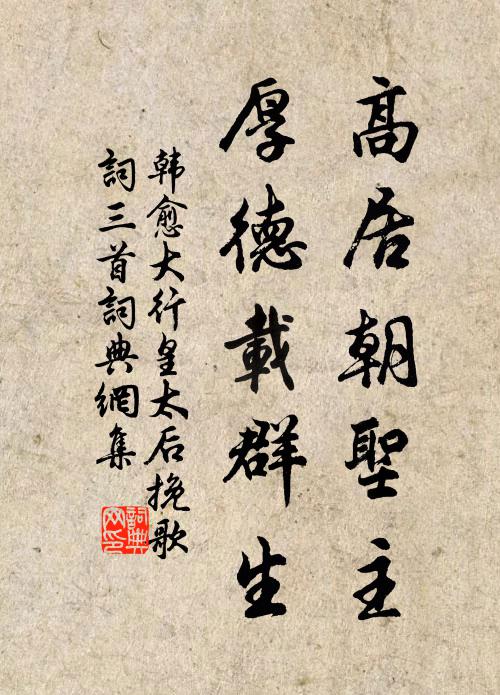 高居朝聖主
厚德載群生
韩愈大行皇太后挽歌
詞三首詞典網集
詞典
网印